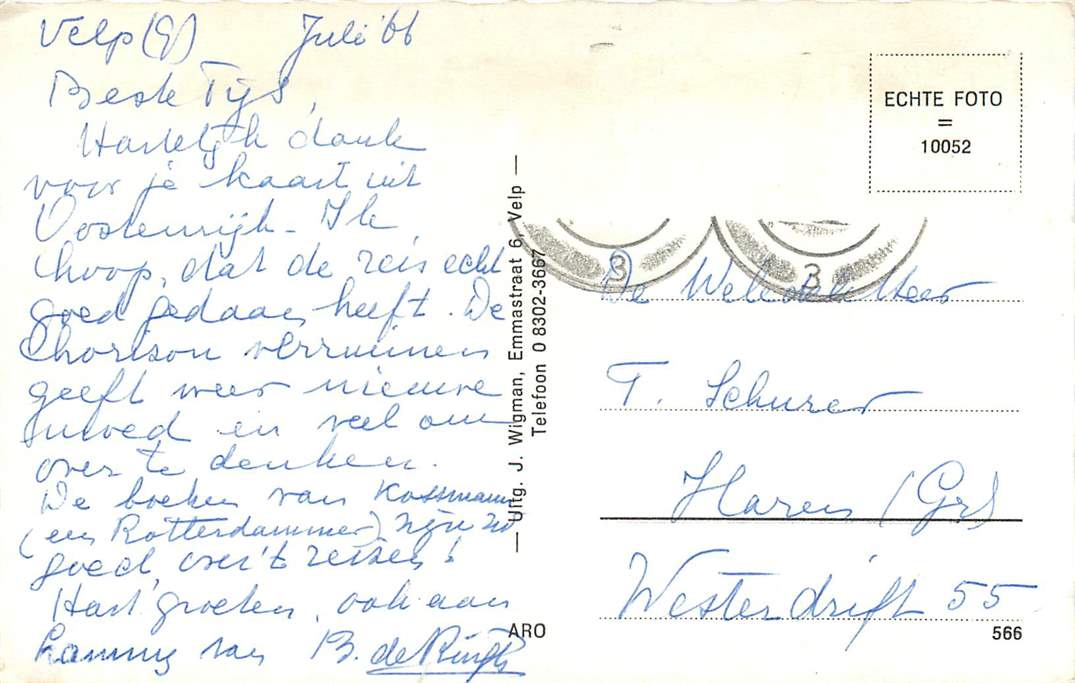 Velp (G) Juli '66
Beste Tijs,
Hartelijk dank
voor je kaart uit
Oostenrijk. Ik
hoop, dat de reis echt
goed gedaan heeft. De
horison verruimen
geeft weer nieuwe
moed en veel om
over te denken.
De boeken van Kossmann
(een Rotterdammer) zijn zo
goed, over 't reizen!
Hart. groeten, ook aan
van B. de
— Uitg. J. Wigman, Emmastraat 6, Velp —
Telefoon 0 8302-3667
ARO
ECHTE FOTO
=
10052
3 3
De Weled. Heer
T. Schurer
Haren (Gr)
Westerdrift 55
566